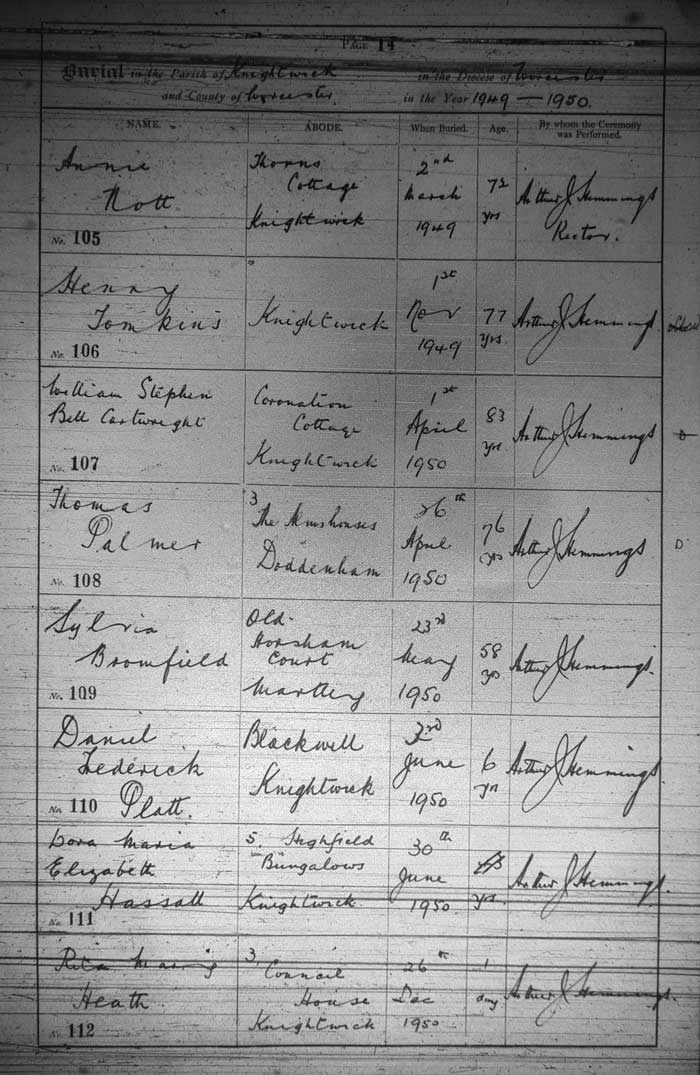 PAGE 14
Burial in the Parish of Knightwick in the Diocese of Worcester
and County of Worcester. in the Year 1949 — 1950.
NAME. ABODE. When Buried. Age. By whom the Ceremony was Performed.
Annie
Nott
No. 105
Thorns
Cottage
Knightwick
2nd
March
1949
72
yrs
Arthur J Hemmings
Rector.
Henry
Tomkins
No. 106
Knightwick
1st
Nov
1949
77
yrs.
Arthur J Hemmings.
William Stephen
Bell Cartwright
No. 107
Coronation
Cottage
Knightwick
1st
April
1950
83
yrs.
Arthur J Hemmings
D
Thomas
Palmer
No. 108
3
The Almshouses
Doddenham
26th
April
1950
76
yrs
Arthur J Hemmings
D
Sylvia
Bromfield
No. 109
Old
Horsham
Court
Martley
23rd
May
1950
58
yrs
Arthur J Hemmings.
Daniel
Frederick
No. 110 Platt.
Blackwell
Knightwick
3rd
June
1950
6
yrs
Arthur J Hemmings.
Dora Maria
Elizabeth
Hassall
No. 111
5. Highfield
Bungalows
Knightwick.
30th
June
1950.
yrs.
Arthur J Hemmings.
Rita
Heath.
No. 112
3
Council
House
Knightwick
26th
Dec
1950.
1
day
Arthur J Hemmings.